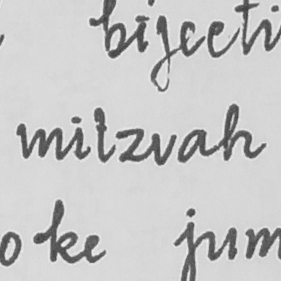 bijecti
mitzvah
oke jum